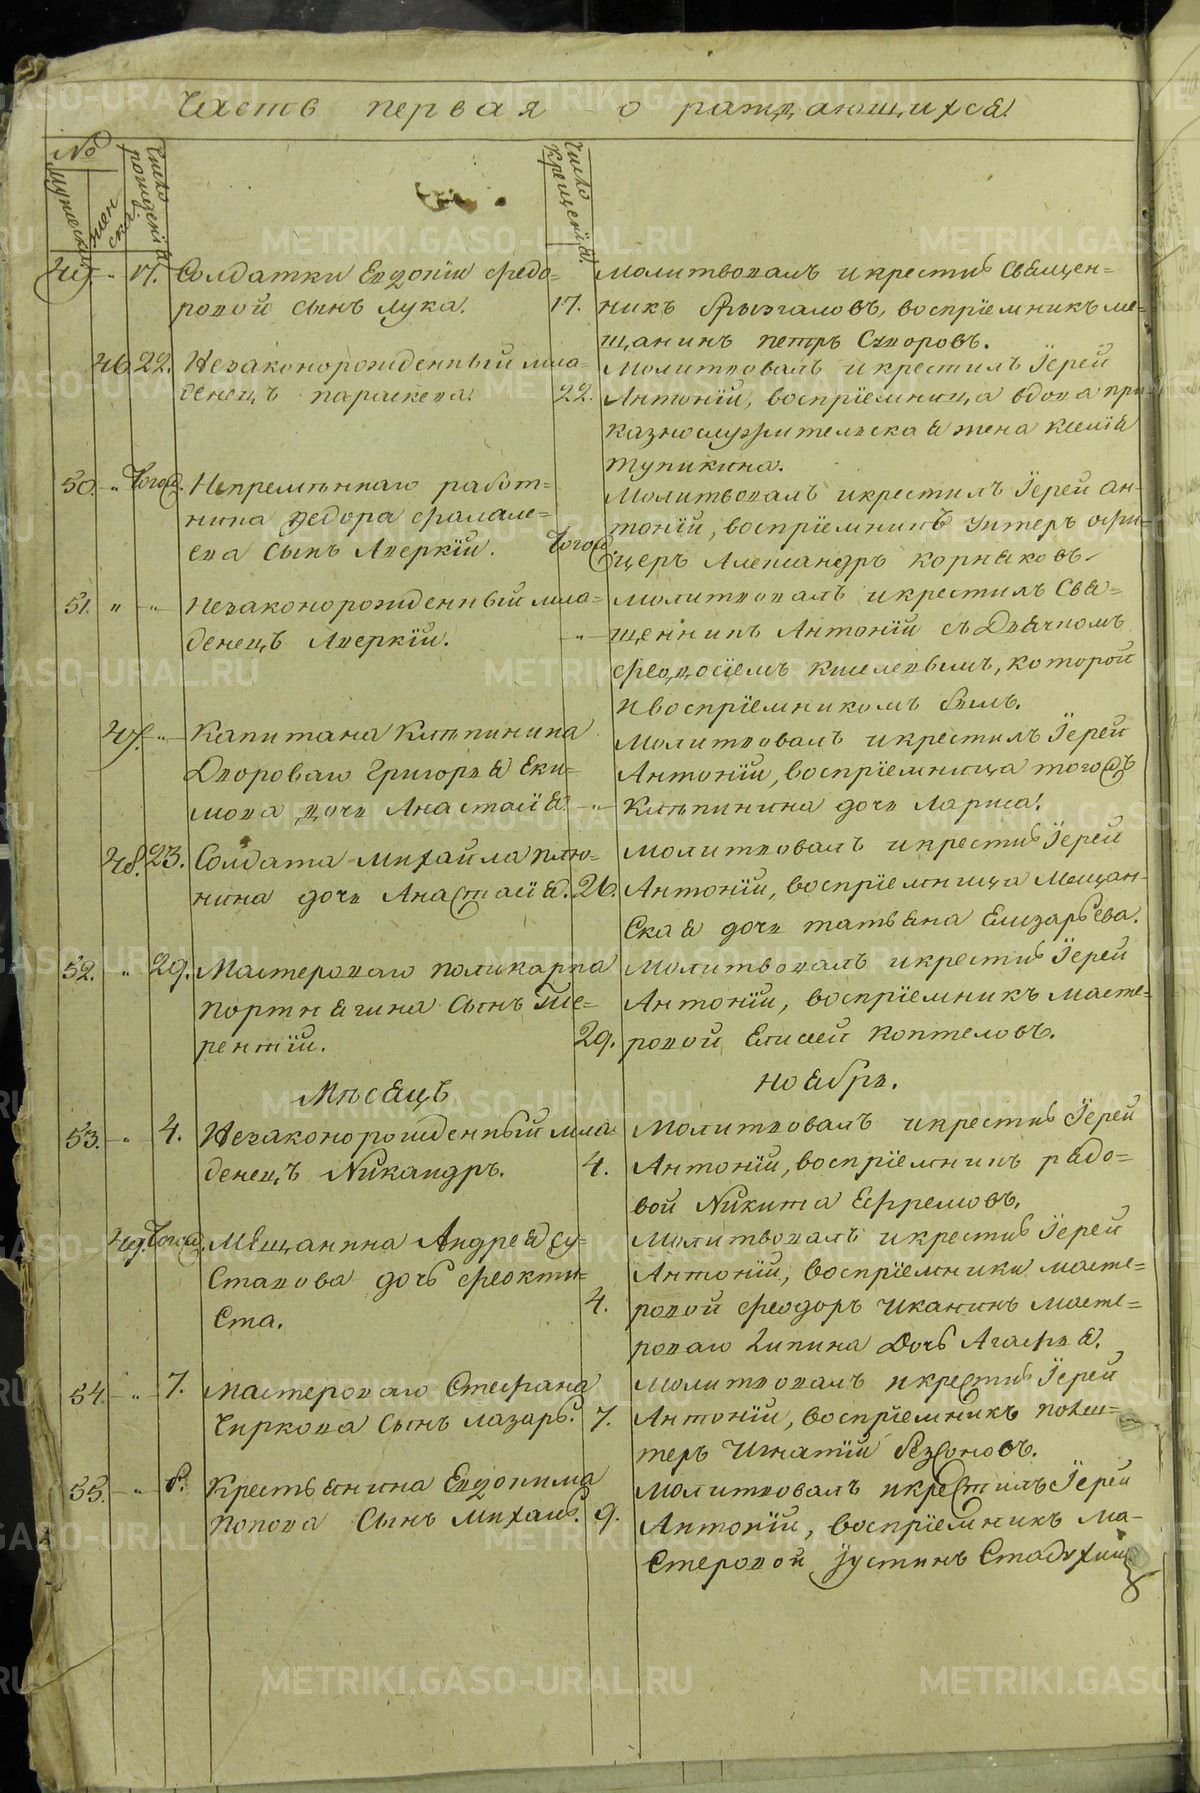 Часть первая о раждающихся.
№
мужеска
женска
Число рождения
Число крещения
49. " 17. Солдатки Евдокіи Федо=
ровой сынъ Лука. 17.
Молитвовалъ и крестилъ Священ=
никъ Брызгаловъ, воспріемникъ ме=
щанинъ Петръ Суворовъ.
46 22. Незаконорожденный мла=
денецъ Параскева. 22.
Молитвовалъ и крестилъ Іерей
Антоній, воспріемница вдова при
казнослужительская жена Ксенія
Тупикина.
50. " Того. Непремѣннаго работ=
ника Федора Фалале=
ева сынъ Аверкій. Того
Молитвовалъ и крестилъ Іерей Ан=
тоній, воспріемникъ Унтеръ офи=
церъ Александръ Корняковъ
51. " " Незаконорожденный мла=
денецъ Аверкій. "
Молитвовалъ и крестилъ Свя=
щенникъ Антоній съ Дьячкомъ
Феодосіемъ Киселевымъ, которой
и воспріемникомъ былъ.
47. " Капитана Кляпинина
Двороваго Григорья Еки=
мова дочь Анастасія. "
Молитвовалъ и крестилъ Іерей
Антоній, воспріемница того
Кляпинина дочь Лариса.
48. 23. Солдата Михайла Плю=
нина дочь Анастасія. 26.
Молитвовалъ и крестилъ Іерей
Антоній, воспріемница Мещан=
ская дочь Татьяна Елизарьева.
52. " 29. Мастероваго Поликарпа
Портнягина сынъ Те=
рентій. 29.
Молитвовалъ и крестилъ Іерей
Антоній, воспріемникъ Масте=
ровой Елисей Коптеловъ.
Мѣсяцъ Ноябрь.
53. " 4. Незаконорожденный мла=
денецъ Никандръ. 4.
Молитвовалъ и крестилъ Іерей
Антоній, воспріемникъ рядо=
вой Никита Ефремовъ.
49. Того. Мѣщанина Андрея Су=
Ставова дочь Феокти=
ста. 4.
Молитвовалъ и крестилъ Іерей
Антоній, воспріемники масте=
ровой Феодоръ Иканинъ масте=
роваго Липина Дочь Агафья.
54. " 7. Мастероваго Стефана
Чиркова сынъ Лазарь. 7.
Молитвовалъ и крестилъ Іерей
Антоній, воспріемникъ
Игнатій Безсоновъ.
55. " 8. Крестьянина Евдокима
Попова сынъ Михаилъ. 9.
Молитвовалъ и крестилъ Іерей
Антоній, воспріемникъ ма=
стеровой Іустинъ Стадухин
METRIKI.GASO-URAL.RU